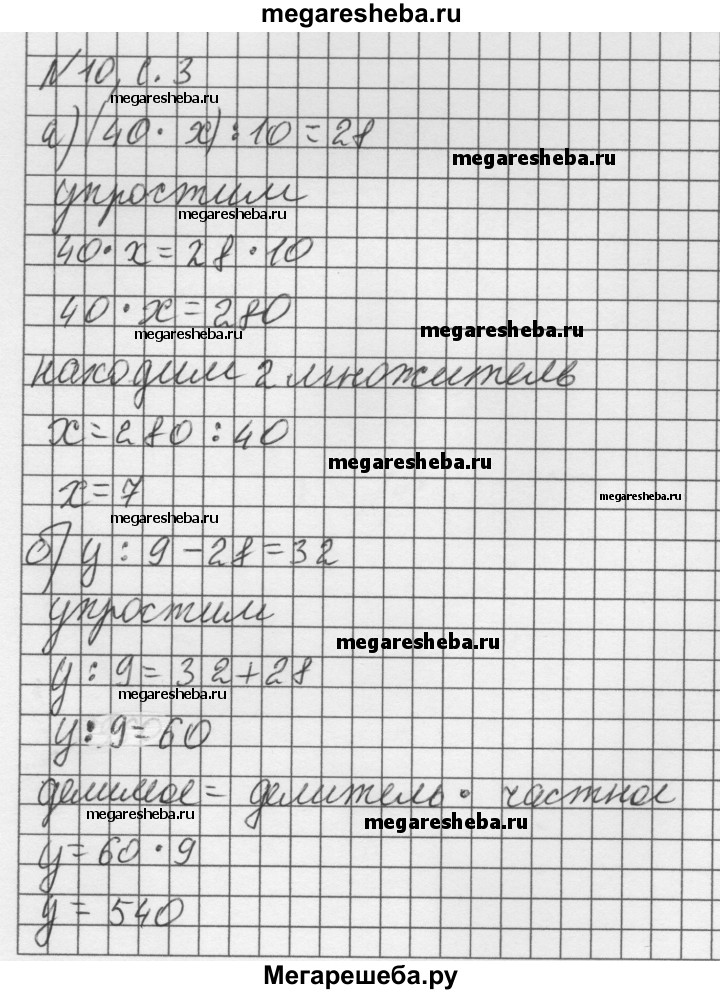 megaresheba.ru
№10, с. 3
megaresheba.ru
а) (40 · x) : 10 = 28
megaresheba.ru
упростим
megaresheba.ru
40 · x = 28 · 10
40 · x = 280
megaresheba.ru
megaresheba.ru
находим 2 множитель
x = 280 : 40
megaresheba.ru
x = 7
megaresheba.ru
megaresheba.ru
б) y : 9 - 28 = 32
упростим
megaresheba.ru
y : 9 = 32 + 28
megaresheba.ru
y : 9 = 60
делимое = делитель · частное
megaresheba.ru
megaresheba.ru
y = 60 · 9
y = 540
Мегарешеба.ру